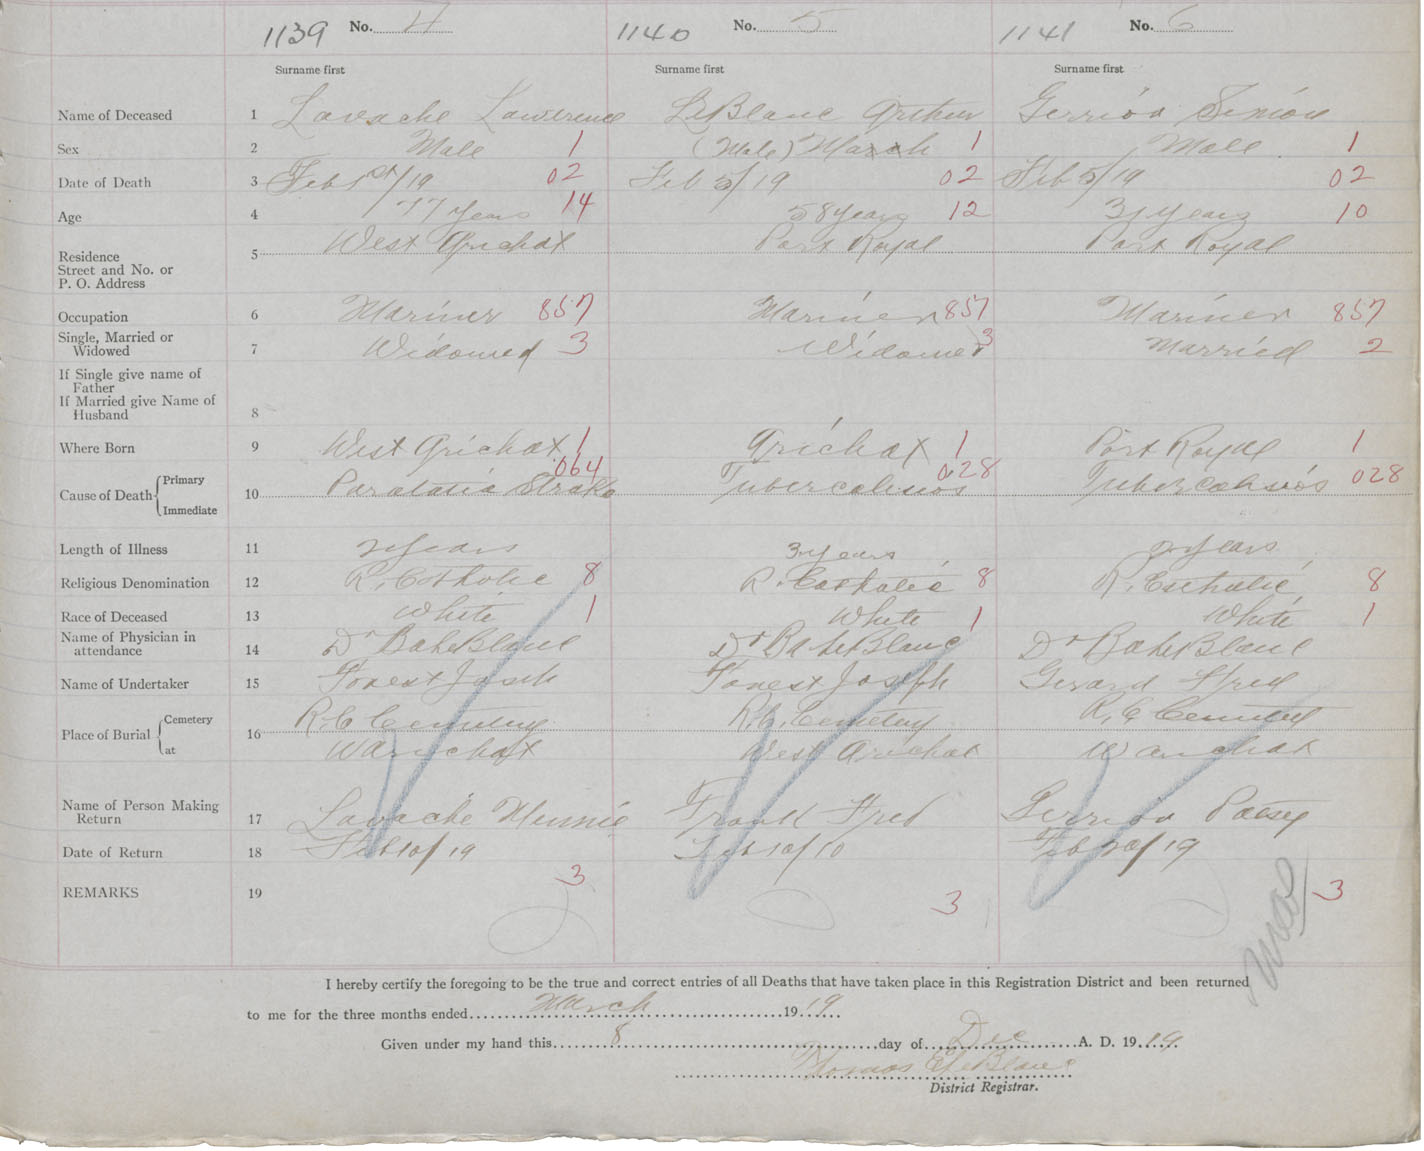 1139 No. 4 1140 No. 5 1141 No. 6
Surname first Surname first Surname first
Name of Deceased 1 Lavache Lawrence LeBlanc Arthur Gerrior Simion
Sex 2 Male 1 (Male) March 1 Male 1
Date of Death 3 Feb 1st/19 02 Feb 5/19 02 Feb 5/19 02
Age 4 77 years 14 58 years 12 31 years 10
Residence
Street and No. or
P. O. Address
5 West Arichat Port Royal Port Royal
Occupation 6 Mariner 857 Mariner 857 Mariner 857
Single, Married or
Widowed
7 Widowed 3 Widower 3 Married 2
If Single give name of
Father
If Married give Name of
Husband
8
Where Born 9 West Arichat 1 Arichat 1 Port Royal 1
Cause of Death Primary
Immediate
10 Paralatic Stroke 064 Tubercolisios 028 Tubercolisios 028
Length of Illness 11 2 years 3 years 2 years
Religious Denomination 12 R. Catholic 8 R. Catholic 8 R. Catholic 8
Race of Deceased 13 White 1 White 1 White 1
Name of Physician in
attendance
14 Dr LeBlanc Dr LeBlanc Dr LeBlanc
Name of Undertaker 15 Forest Joseh Forest Joseph Gerard Fred
Place of Burial Cemetery
at
16 R.C Cemetery R.C. Cemetery R.C Cemetery
W Arichat West Arichat W Arichat
Name of Person Making
Return
17 Lavache Minnie Frank Fred Gerrior
Date of Return 18 Feb 10/19 Feb 10/10 Feb 20/19
REMARKS 19 3 3 3
I hereby certify the foregoing to be the true and correct entries of all Deaths that have taken place in this Registration District and been returned
to me for the three months ended March 1919
Given under my hand this 8 day of Dec A. D. 1919
Thomas E LeBlanc
District Registrar.